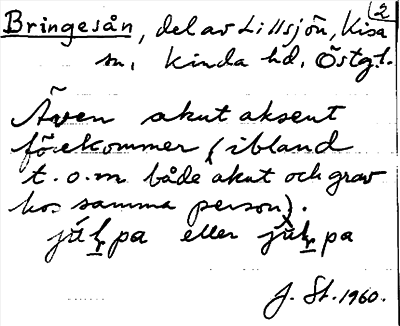 2
Bringesån, del av Lillsjön, Kisa
sn, Kinda hd, Östgl.
Även akut aksent
förekommer (ibland
t.o.m både akut och grav
hos samma person).
pa eller pa
J. St. 1960.